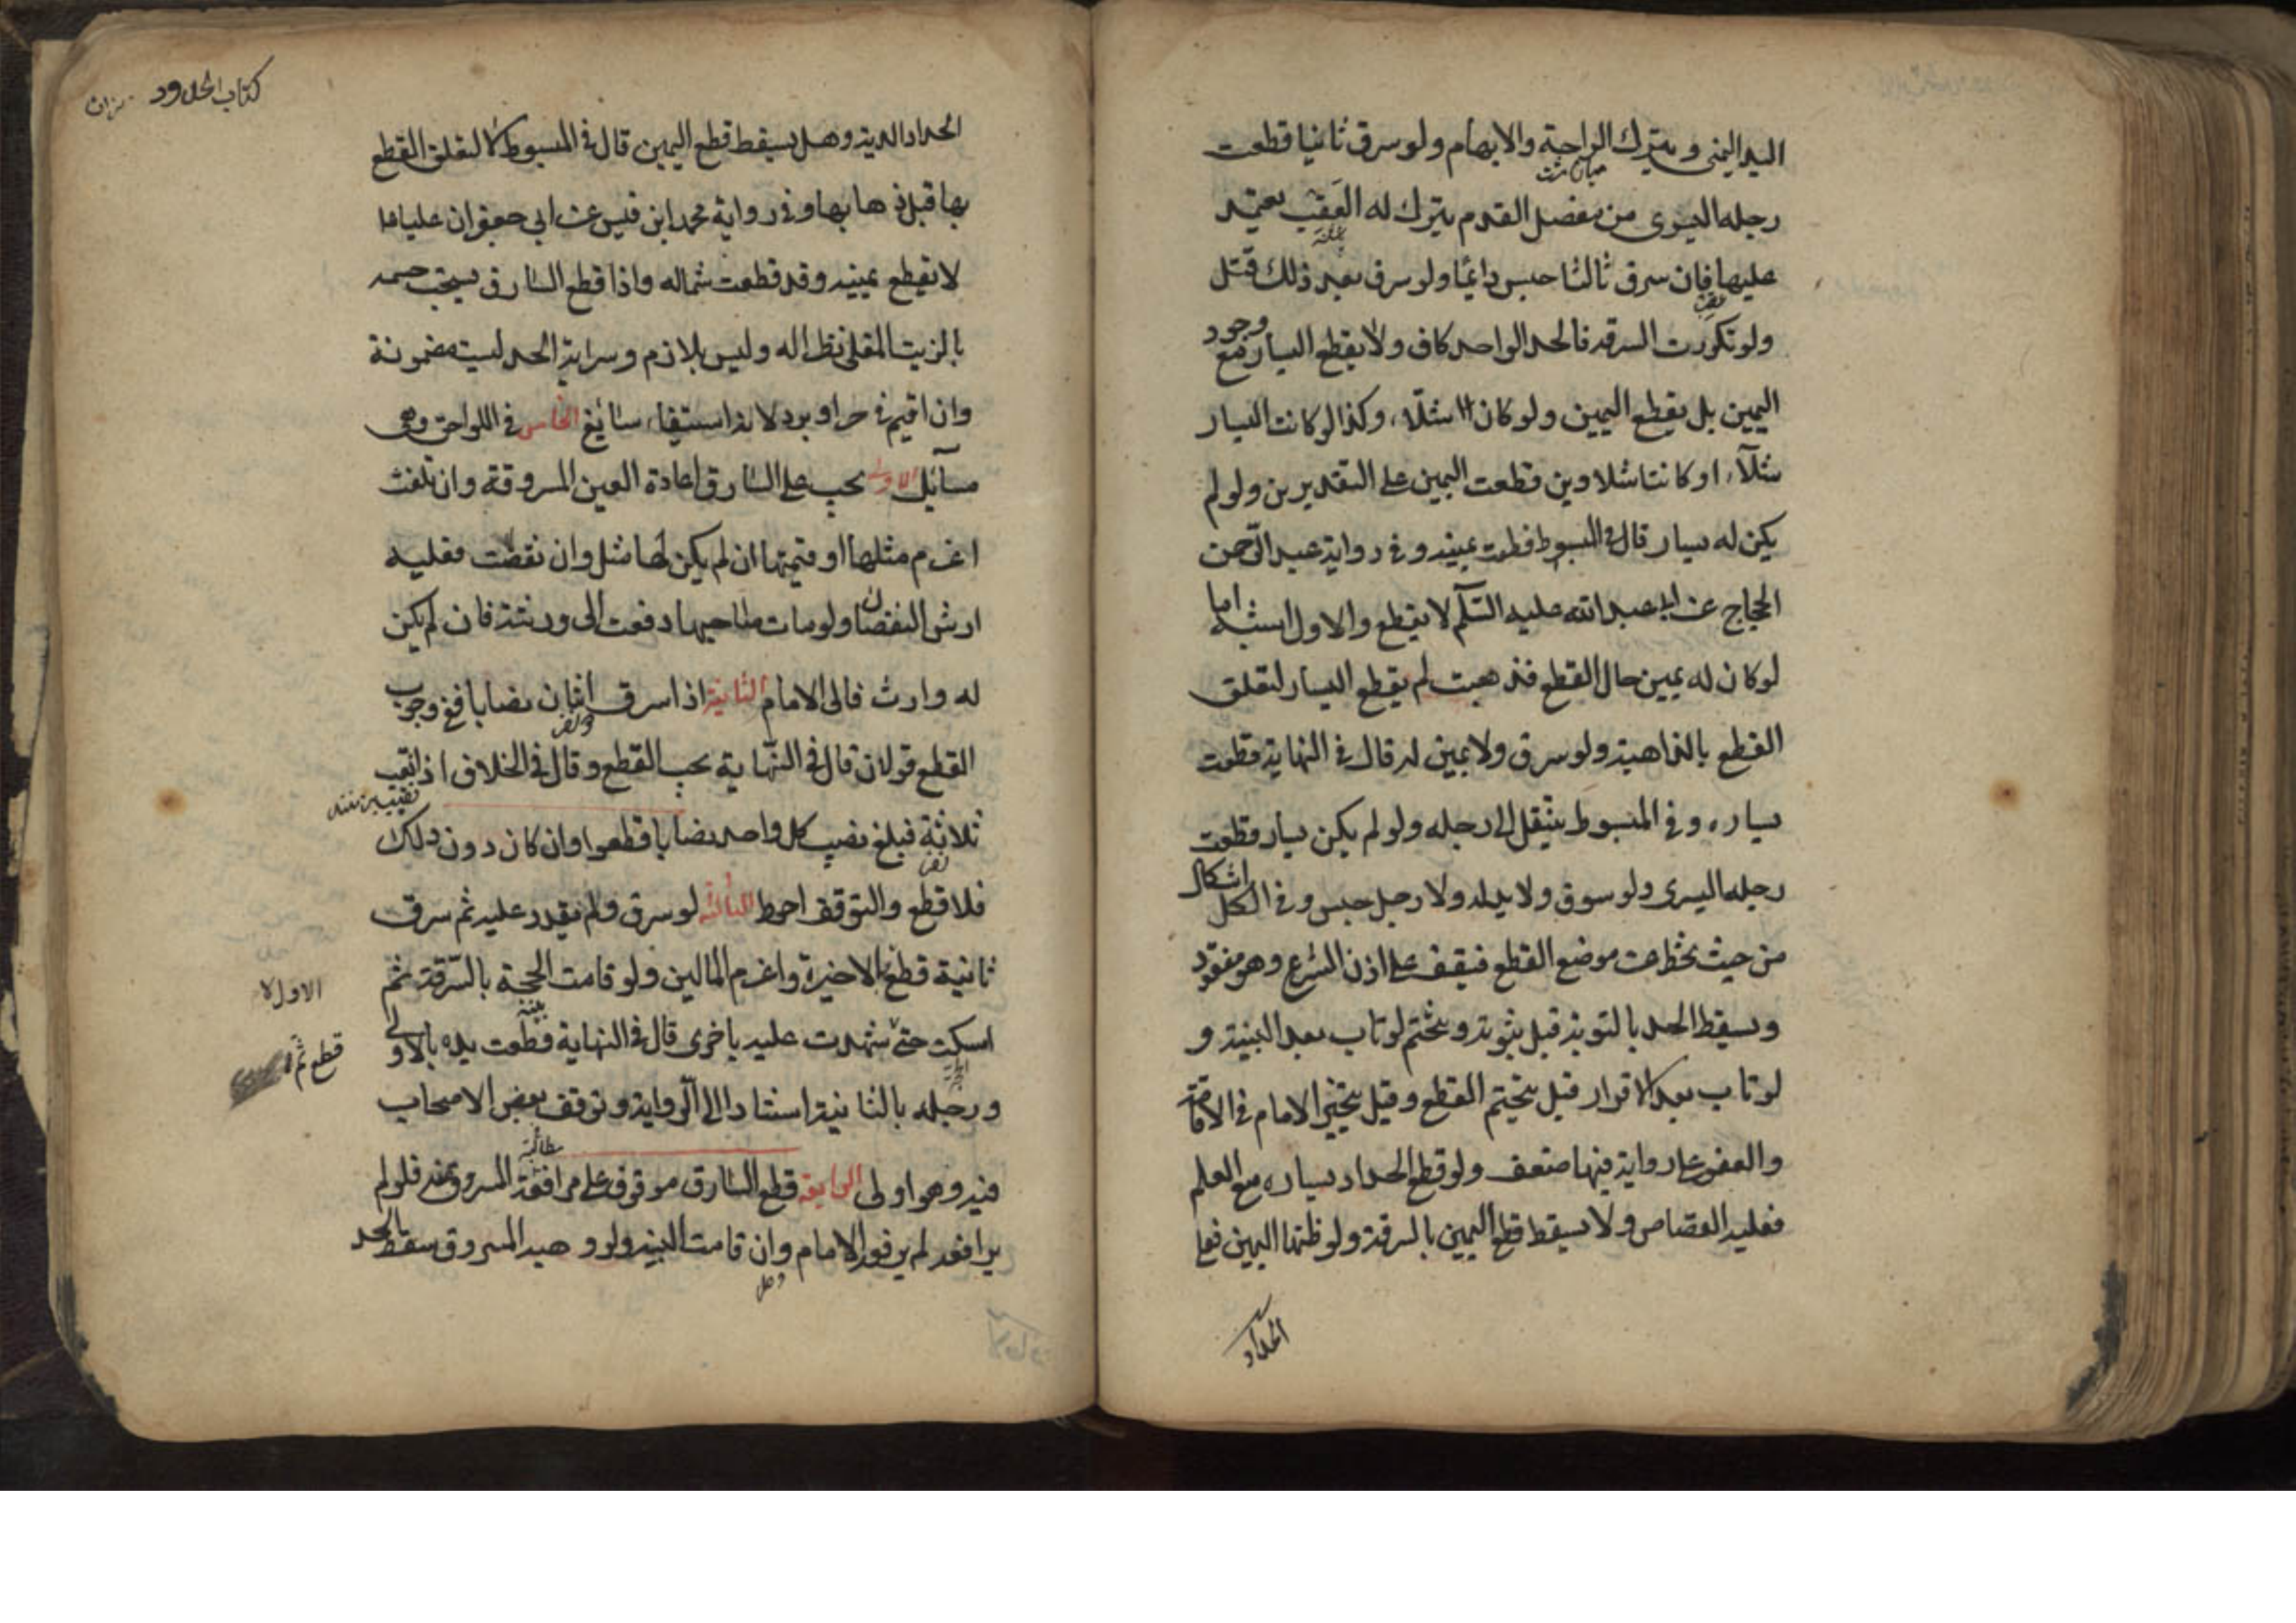 اليد اليمنى ويترك الراحة والابهام ولو سرق ثانيا قطعت
رجله اليسرى من مفصل القدم يترك له العقب يعتمد
عليها فان سرق ثالثا حبس دائما ولو سرق بعد ذلك قتل
ولو تكررت السرقة فالحد الواحد كاف ولا يقطع اليسار مع وجود
اليمين بل يقطع اليمين ولو كان شلاء وكذا لو كانت اليسار
شلاء او كانتا شلاوين قطعت اليمين على التقديرين ولو لم
يكن له يسار قال في المبسوط قطعت يمينه وفي رواية عبد الرحمن
الحجاج عن ابي عبد الله عليه السلم لا يقطع والاول اشبه اما
لو كان له يمين حال القطع فذهبت لم يقطع اليسار لتعلق
القطع بالذاهبة ولو سرق ولا يمين له قال في النهاية قطعت
يساره وفي المبسوط ينتقل الى رجله ولو لم يكن يسار قطعت
رجله اليسرى ولو سرق ولا يد له ولا رجل حبس وفي الكل اشكال
من حيث تخطى عن موضع القطع فيقف على اذن الشرع وهو مفقود
ويسقط الحد بالتوبة قبل ثبوته ويتحتم لو تاب بعد البينة و
لو تاب بعد الاقرار قيل يتحتم القطع وقيل يتخير الامام في الاقامة
والعفو على رواية فيها ضعف ولو قطع الحداد يساره مع العلم
فعليه القصاص ولا يسقط قطع اليمين بالسرقة ولو ظنها اليمين فعلى
الحداد
كتاب الحدود
الحداد الدية وهل يسقط قطع اليمين قال في المبسوط لا لتعلق القطع
بها قبل ذهابها وفي رواية محمد ابن قيس عن ابي جعفر ان عليا ع
لا يقطع يمينه وقد قطعت شماله واذا قطع السارق يستحب حسمه
بالزيت المغلى نظرا له وليس بلازم وسراية الحد ليست مضمونة
وان اقيم في حر او برد لانه استيفاء سائغ الخامس في اللواحق وهى
مسائل الاولى يجب على السارق اعادة العين المسروقة وان تلفت
اغرم مثلها او قيمتها ان لم يكن لها مثل وان نقصت فعليه
ارش النقصان ولو مات صاحبها دفعت الى ورثته فان لم يكن
له وارث فالى الامام الثانية اذا سرق اثنان نصابا ففي وجوب
القطع قولان قال في النهاية يجب القطع وقال في الخلاف اذا نقب
ثلاثة فبلغ نصيب كل واحد نصابا قطعوا وان كان دون ذلك
فلا قطع والتوقف احوط الثالثة لو سرق ولم يقدر عليه ثم سرق
ثانية قطع بالاخيرة واغرم المالين ولو قامت الحجة بالسرقة ثم
امسكت حتى شهدت عليه باخرى قال في النهاية قطعت يده بالاولى
ورجله بالثانية استنادا الى الرواية وتوقف بعض الاصحاب
فيه وهو اولى الرابعة قطع السارق موقوف على مرافقة المسروق منه فلو لم
يرافعه لم يرفعه الامام وان قامت البينة ولو وهبه المسروق سقط الحد
الاولا
قطع ثم